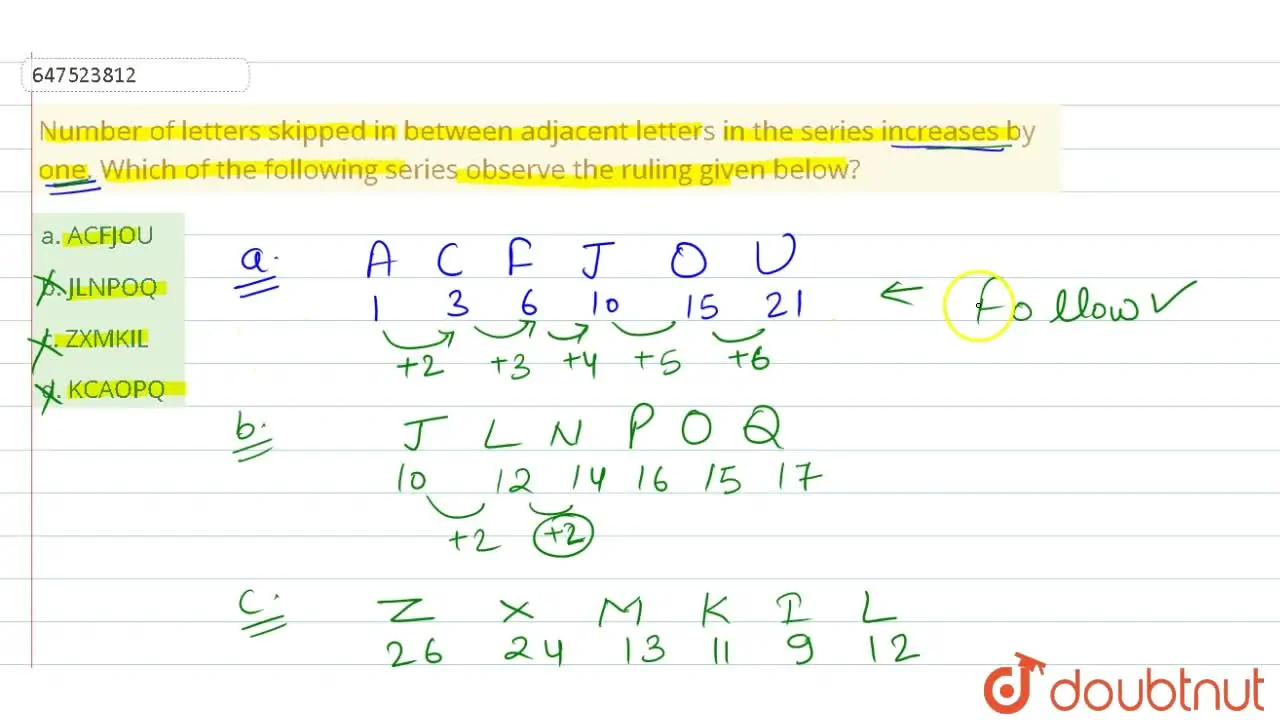 647523812
Number of letters skipped in between adjacent letters in the series increases by
one. Which of the following series observe the ruling given below?
a. ACFJOU
b. JLNPOQ
c. ZXMKIL
d. KCAOPQ
a. A C F J O U
1 3 6 10 15 21 ← Follow ✓
+2 +3 +4 +5 +6
b. J L N P O Q
10 12 14 16 15 17
+2 +2
C. Z X M K I L
26 24 13 11 9 12
doubtnut